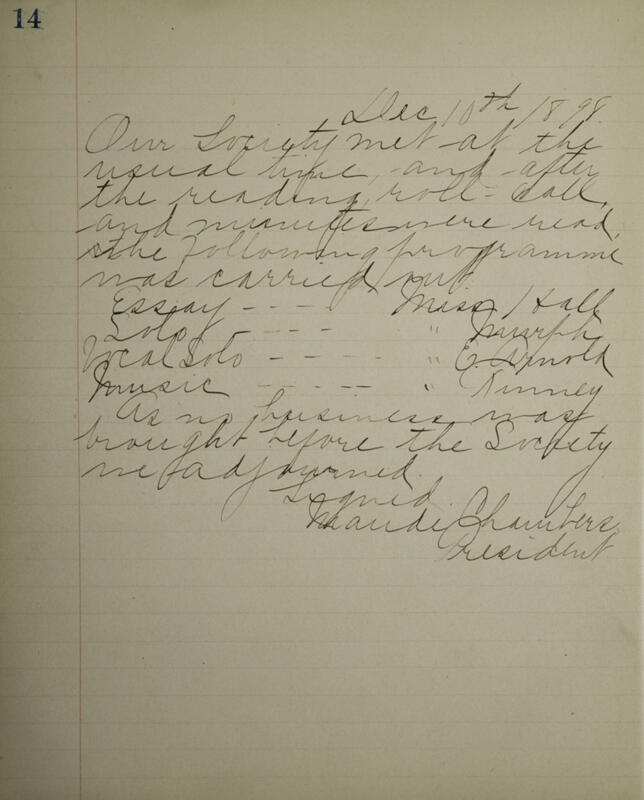 14
Dec 10th 1898
Our Society met at the
usual time, and after
the reading, roll-call,
and minutes were read,
the following programme
was carried out.
Essay - - - - Miss Hall
Solo - - - - " Murph
Vocal Solo - - - - - " E. Arnold
Music - - - - - " Kinney
As no business was
brought before the Society
we adjourned.
Signed
Maude Chambers
President